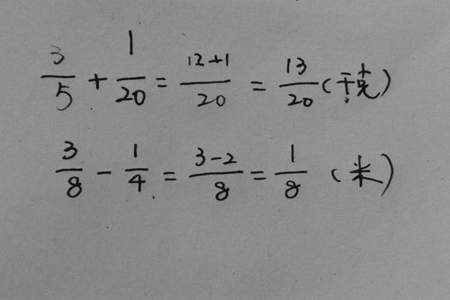 3/5 + 1/20 = 12+1/20 = 13/20 (千克)
3/8 - 1/4 = 3-2/8 = 1/8 (米)